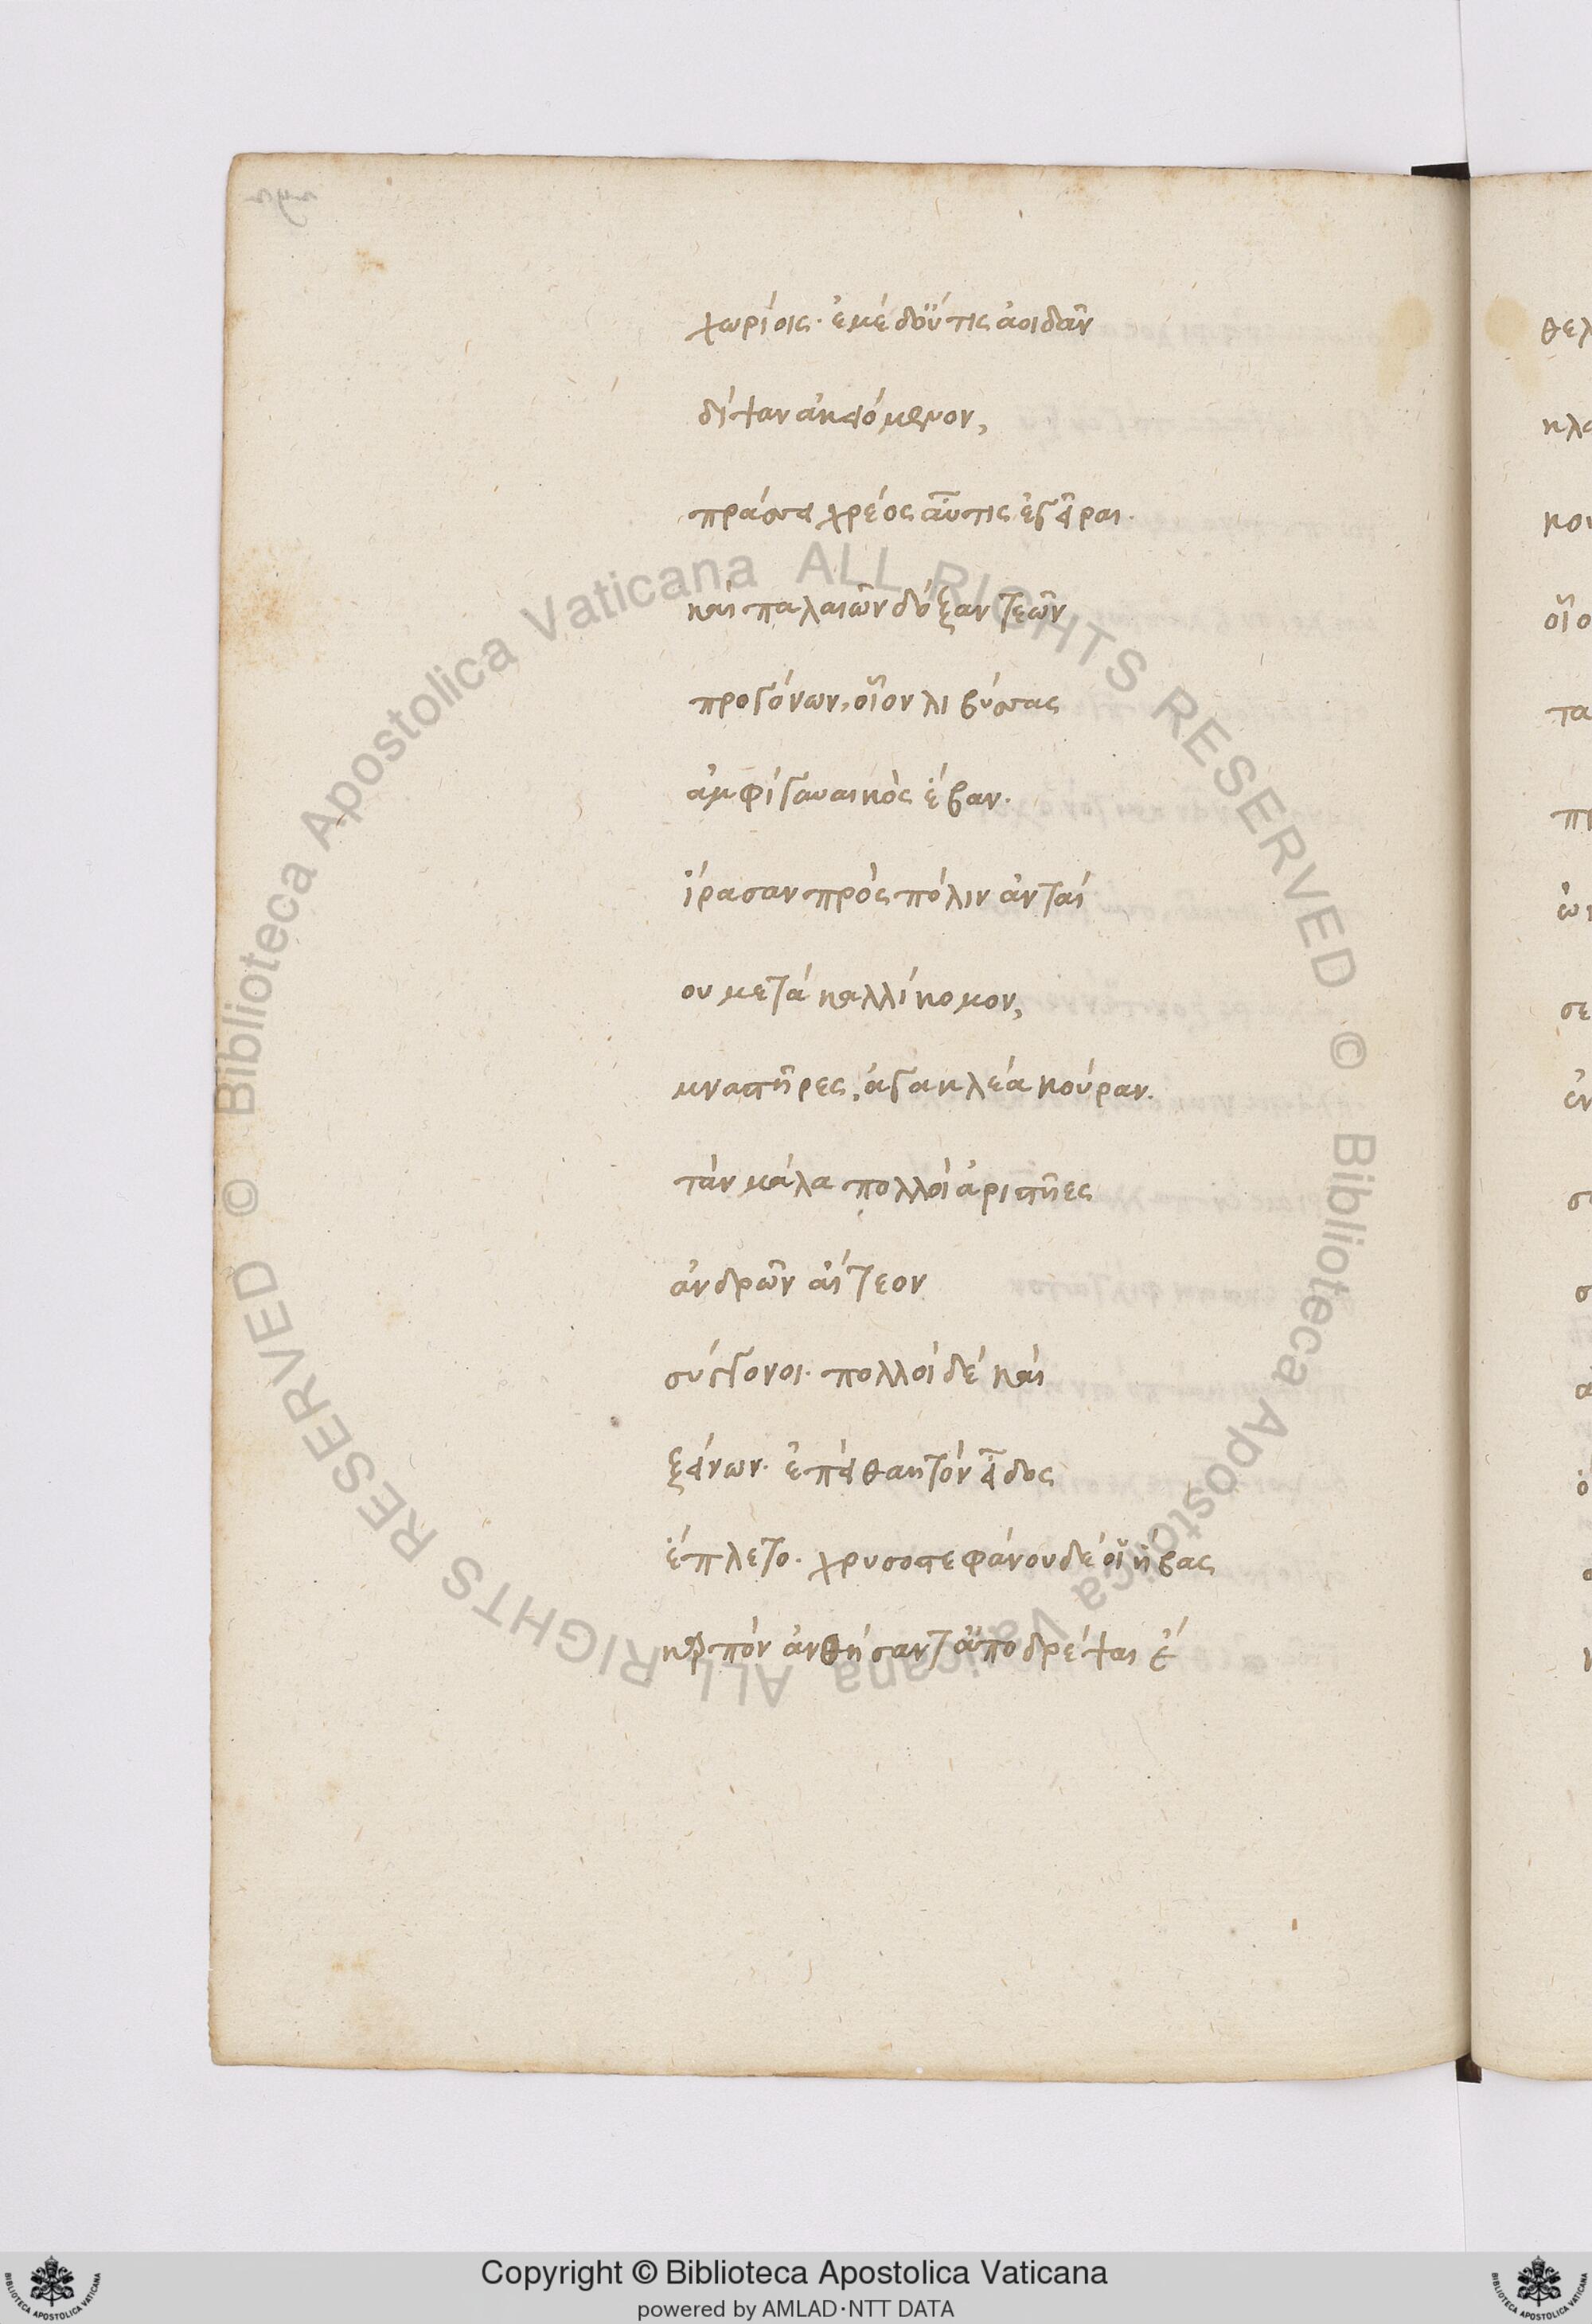 χωρίοις. ἐμὲ δ' οὖν τις ἀοιδᾶν
δίψαν ἀκειόμενον,
πράσσει χρέος αὖτις ἐγεῖραι.
καὶ παλαιῶν δόξαν τεῶν
προγόνων, οἷον λιβύσσας
ἀμφὶ γυναικὸς ἔβαν.
ἴρασαν πρὸς πόλιν ἀνταί
ου μετὰ καλλίκομον,
μναστῆρες, ἀγακλέα κούραν.
τὰν μάλα πολλοὶ ἀριστῆες
ἀνδρῶν αἴτεον
σύγγονοι. πολλοὶ δὲ καὶ
ξείνων. ἐπεὶ θαητὸν εἶδος
ἔπλετο. χρυσοστεφάνου δέ οἱ ἥβας
καρπὸν ἀνθήσαντ' ἀποδρέψαι ἔ
θελ
κλ
κου
οἷο
τα
πρ
ὠι
σε
ἐν
Copyright © Biblioteca Apostolica Vaticana
powered by AMLAD·NTT DATA
© Biblioteca Apostolica Vaticana ALL RIGHTS RESERVED
© Biblioteca Apostolica Vaticana ALL RIGHTS RESERVED
BIBLIOTECA APOSTOLICA VATICANA
BIBLIOTECA APOSTOLICA VATICANA